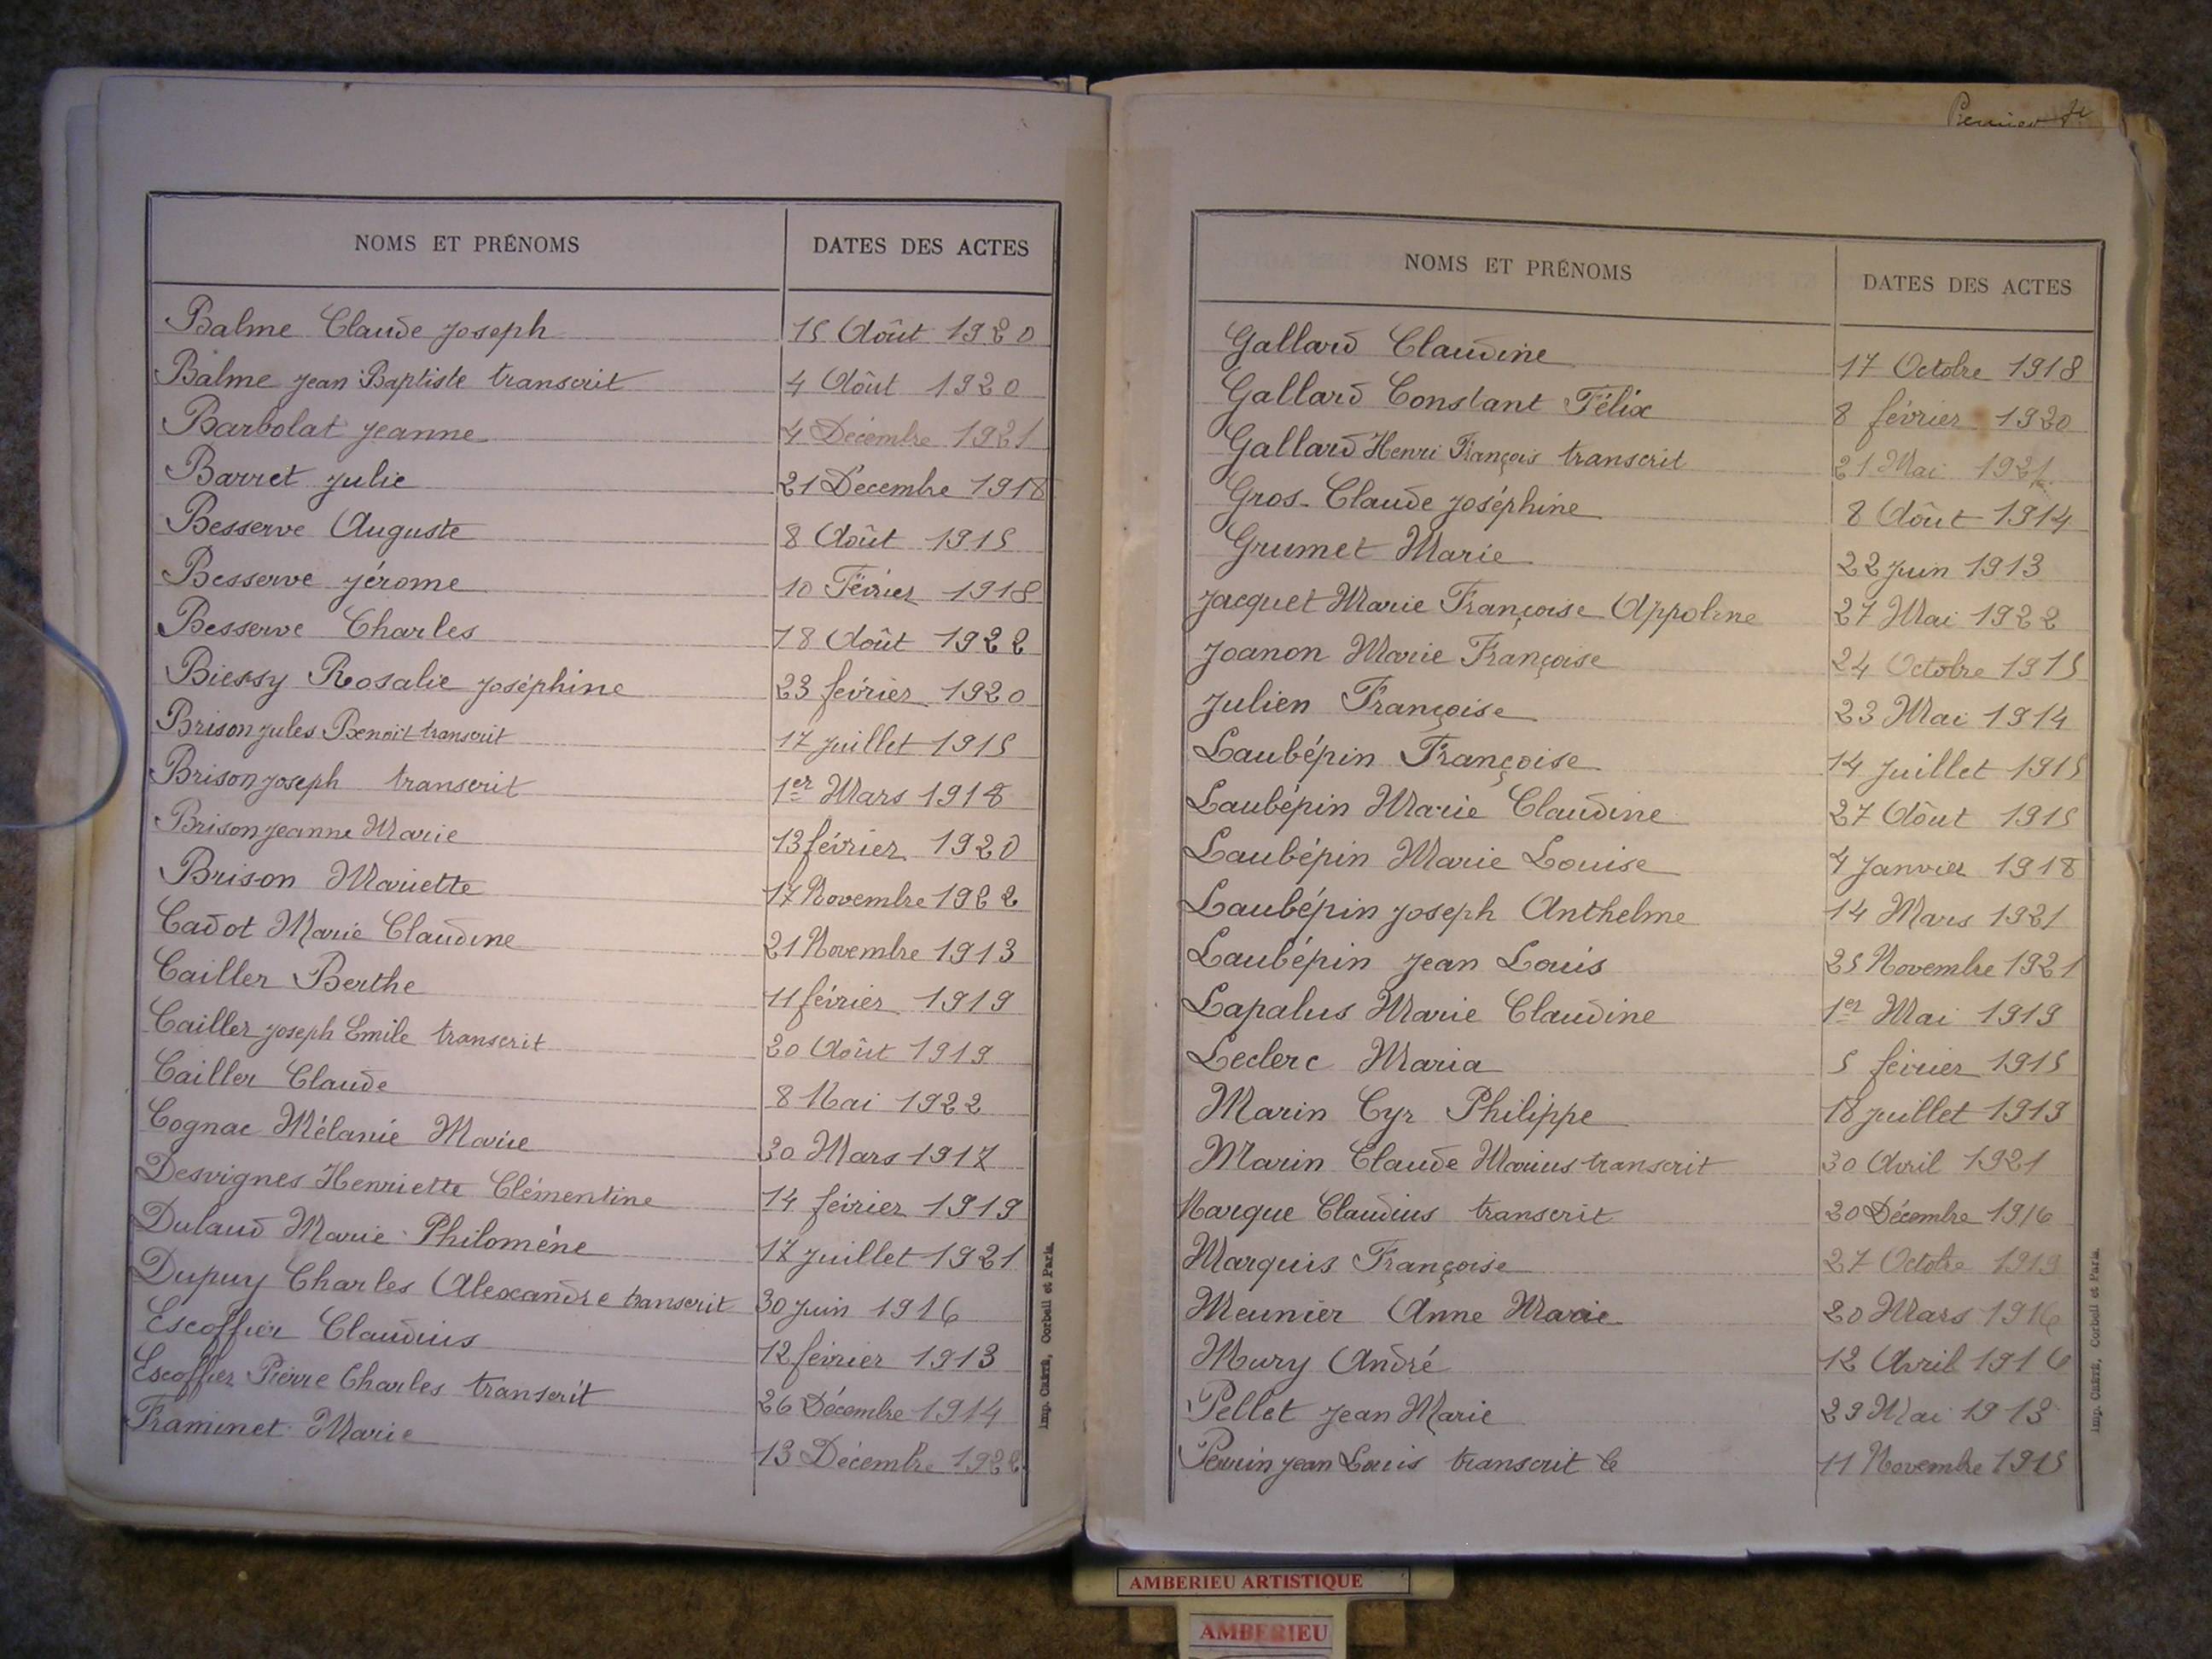 NOMS ET PRÉNOMS DATES DES ACTES
Balme Claude Joseph 15 Août 1920
Balme Jean Baptiste transcrit 4 Août 1920
Barbolat Jeanne 4 Décembre 1921
Barret Julie 21 Décembre 1918
Besserve Auguste 8 Août 1915
Besserve Jérome 10 Février 1918
Besserve Charles 18 Août 1922
Biessy Rosalie Joséphine 23 février 1920
Brison Jules Benoit transcrit 17 Juillet 1915
Brison Joseph transcrit 1er Mars 1918
Brison Jeanne Marie 13 février 1920
Brison Mariette 17 Novembre 1922
Cadot Marie Claudine 21 Novembre 1913
Cailler Berthe 11 février 1919
Cailler Joseph Emile transcrit 20 Août 1919
Cailler Claude 8 Mai 1922
Cognac Mélanie Marie 30 Mars 1917
Desvignes Henriette Clémentine 14 février 1919
Dulaud Marie Philoméne 17 Juillet 1921
Dupuy Charles Alexandre transcrit 30 Juin 1916
Escoffier Claudius 12 février 1913
Escoffier Pierre Charles transcrit 26 Décembre 1914
Framinet Marie 13 Décembre 1922
Imp. CRÉTÉ, Corbeil et Paris.
Premier
NOMS ET PRÉNOMS DATES DES ACTES
Gallard Claudine 17 Octobre 1918
Gallard Constant Félix 8 février 1920
Gallard Henri François transcrit 21 Mai 1921
Gros-Claude Joséphine 8 Août 1914
Grumet Marie 22 Juin 1913
Jacquet Marie Françoise Appoline 27 Mai 1922
Joanon Marie Françoise 24 Octobre 1915
Julien Françoise 23 Mai 1914
Laubépin Françoise 14 Juillet 1915
Laubépin Marie Claudine 27 Aôut 1915
Laubépin Marie Louise 7 Janvier 1918
Laubépin Joseph Anthelme 14 Mars 1921
Laubépin Jean Louis 25 Novembre 1921
Lapalus Marie Claudine 1er Mai 1919
Leclerc Maria 5 février 1915
Marin Cyr Philippe 18 Juillet 1919
Marin Claude Marius transcrit 30 Avril 1921
Marque Claudius transcrit 20 Décembre 1916
Marquis Françoise 27 Octobre 1919
Meunier Anne Marie 20 Mars 1916
Mury André 12 Avril 1916
Pellet Jean Marie 29 Mai 1913
Perrin Jean Louis transcrit le 11 Novembre 1915
Imp. CRÉTÉ, Corbeil et Paris.
AMBERIEU ARTISTIQUE
AMBERIEU